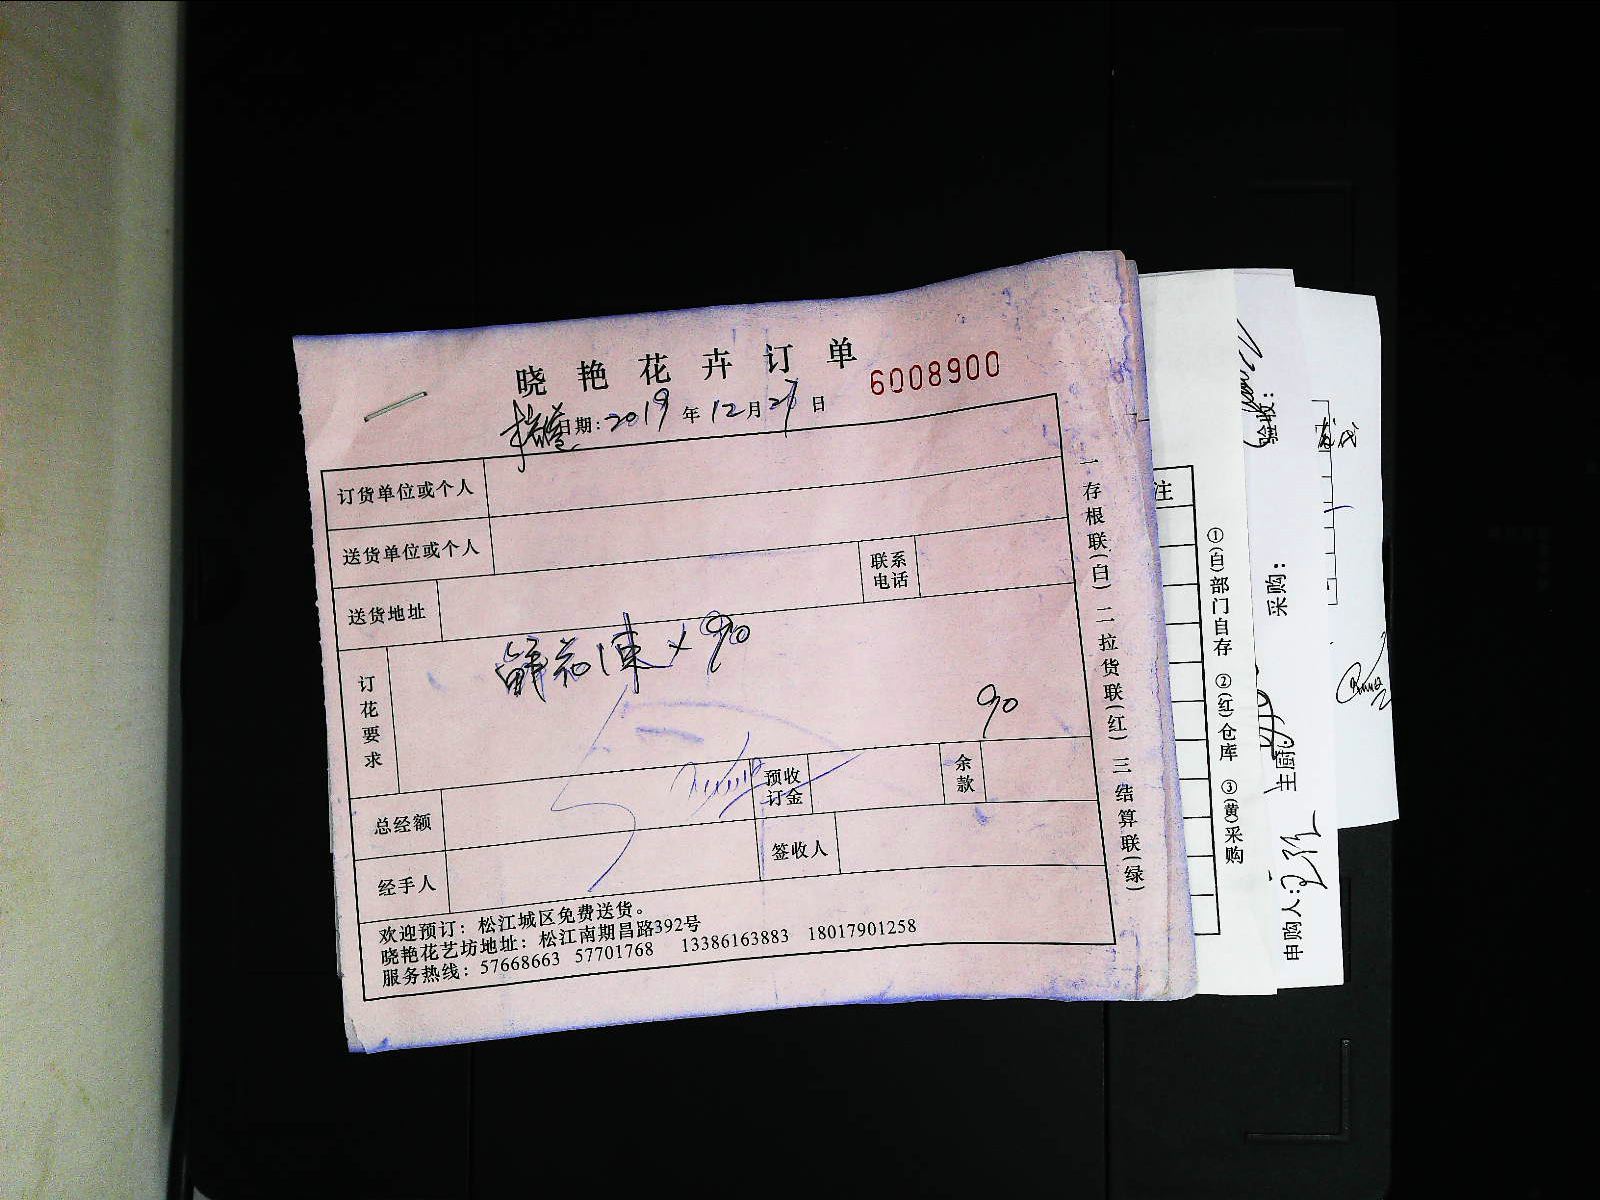 晓艳花卉订单
6008900
日期:2019年12月27日
订货单位或个人
送货单位或个人
送货地址
联系电话
订花要求
鲜花1束×90
90
总经额
预收订金
余款
经手人
签收人
欢迎预订：松江城区免费送货。
晓艳花艺坊地址：松江南期昌路392号
服务热线：57668663 57701768 13386163883 18017901258
一存根联(白) 二拉货联(红) 三结算联(绿)
注
①(白)部门自存 ②(红)仓库 ③(黄)采购
验收：
采购：
主厨：
申购人：